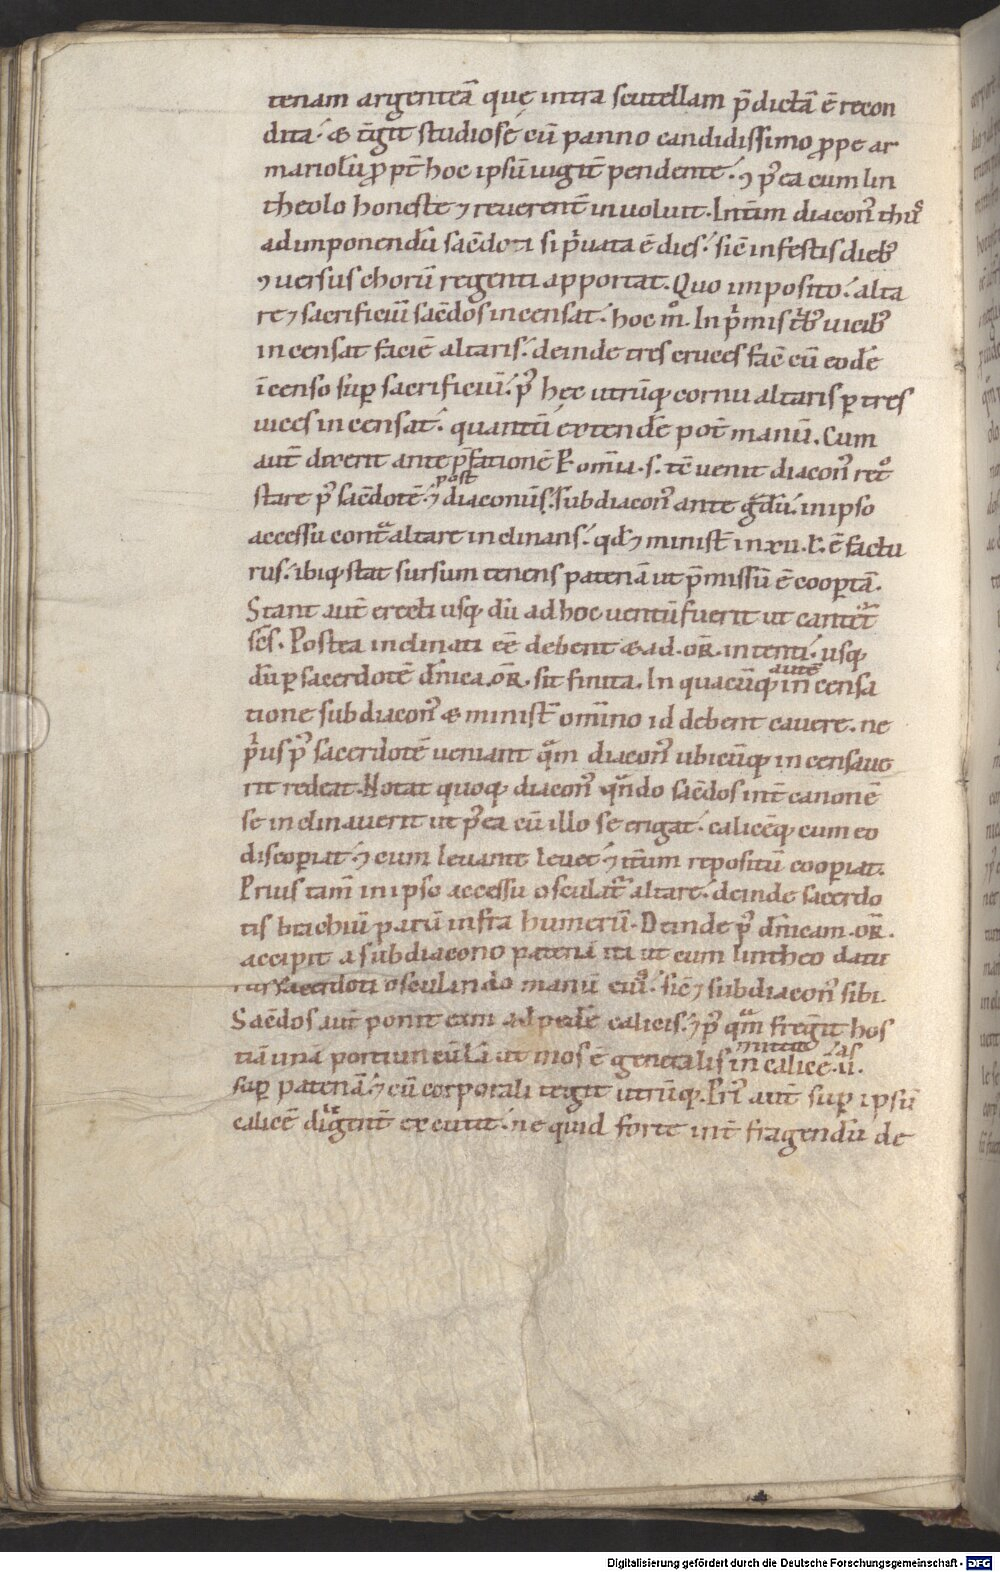 tenam argenteā quę intra scutellam p̄dictā ē recon
dita· & t̄git studiosē cū panno candidissimo ꝓpe ar
mariolū ꝓpt̄ hoc ipsū iugit̄ pendente· ⁊ p᾽ea cum lin
theolo honeste ⁊ reuerent̄ inuoluit. Int̄im diacon᾽ thꝰ
ad imponendū sac̄doti si p̓uata ē dies· sic̄ in festis dieb᾽
⁊ uersus chorū regenti apportat. Quo imposito· alta
re ⁊ sacrificiū sac̄dos incensat· hoc mͦ. In p̓mis trib᾽ uicib᾽
incensat faciē altaris· deinde tres cruces fac̄ cū eodē
īcenso sup̄ sacrificiū· p᾽ hęc utrūq; cornu altaris ꝑ tres
uices incensat· quantū extendē pot̄ manū. Cum
aut̄ dixerit ante p̄fationē P om̄ia .s. tc̄ uenit diacon᾽ retͦ
stare p᾽ sac̄dotē· ⁊ post diaconūs· subdiacon᾽ ante g̓dū· in ipso
accessu contͣ altare inclinans· qd̄ ⁊ minist̄ in xii. ł. ē factu
rus· ibiq; stat sursum tenens patenā ut p̄missū ē coop̄tā.
Stant aut̄ erecti usq; dū ad hoc uentū fuerit ut cantet̄
sc̄s. Postea inclinati eē debent & ad .oR̄. intenti· usq;
dū ꝑ sacerdotē dn̄ica .oR̄. sit finita. In quacūq; autē incensa
tione subdiacon᾽ & minist̄ om̄ino id debent cauere. ne
p̓us p᾽ sacerdotē ueniant qͣm diacon᾽ ubicūq; incensaue
rit redeat. Notat quoq; diacon᾽ qn̄do sac̄dos int̄ canonē
se inclinauerit ut p᾽ea cū illo se erigat· calicēq; cum eo
discop̄iat· ⁊ cum leuante leuet· ⁊ it̄um repositū coop̄iat.
Prius tam̄ in ipso accessu osculat̄ altare· deinde sacerdo
tis brachiū parū infra humerū. Deinde p᾽ dn̄icam .oR̄.
accipit a subdiacono patenā ita ut cum lintheo datu
sacerdoti osculando manū eiꝰ· sic̄ ⁊ subdiacon᾽ sibi.
Sac̄dos aut̄ ponit eam ad pedē calicis· ⁊ p᾽ qͣm fregit hos
tiā unā portiunculā ut mos ē generalis mittit in calicē· ii.as
sup̄ patenā· ⁊ cū corporali tegit utrūq;. Pri᾽ aut̄ sup̄ ipsū
calicē dilgent̄ excutit· ne quid forte int̄ frāgendū de
Digitalisierung gefördert durch die Deutsche Forschungsgemeinschaft - DFG